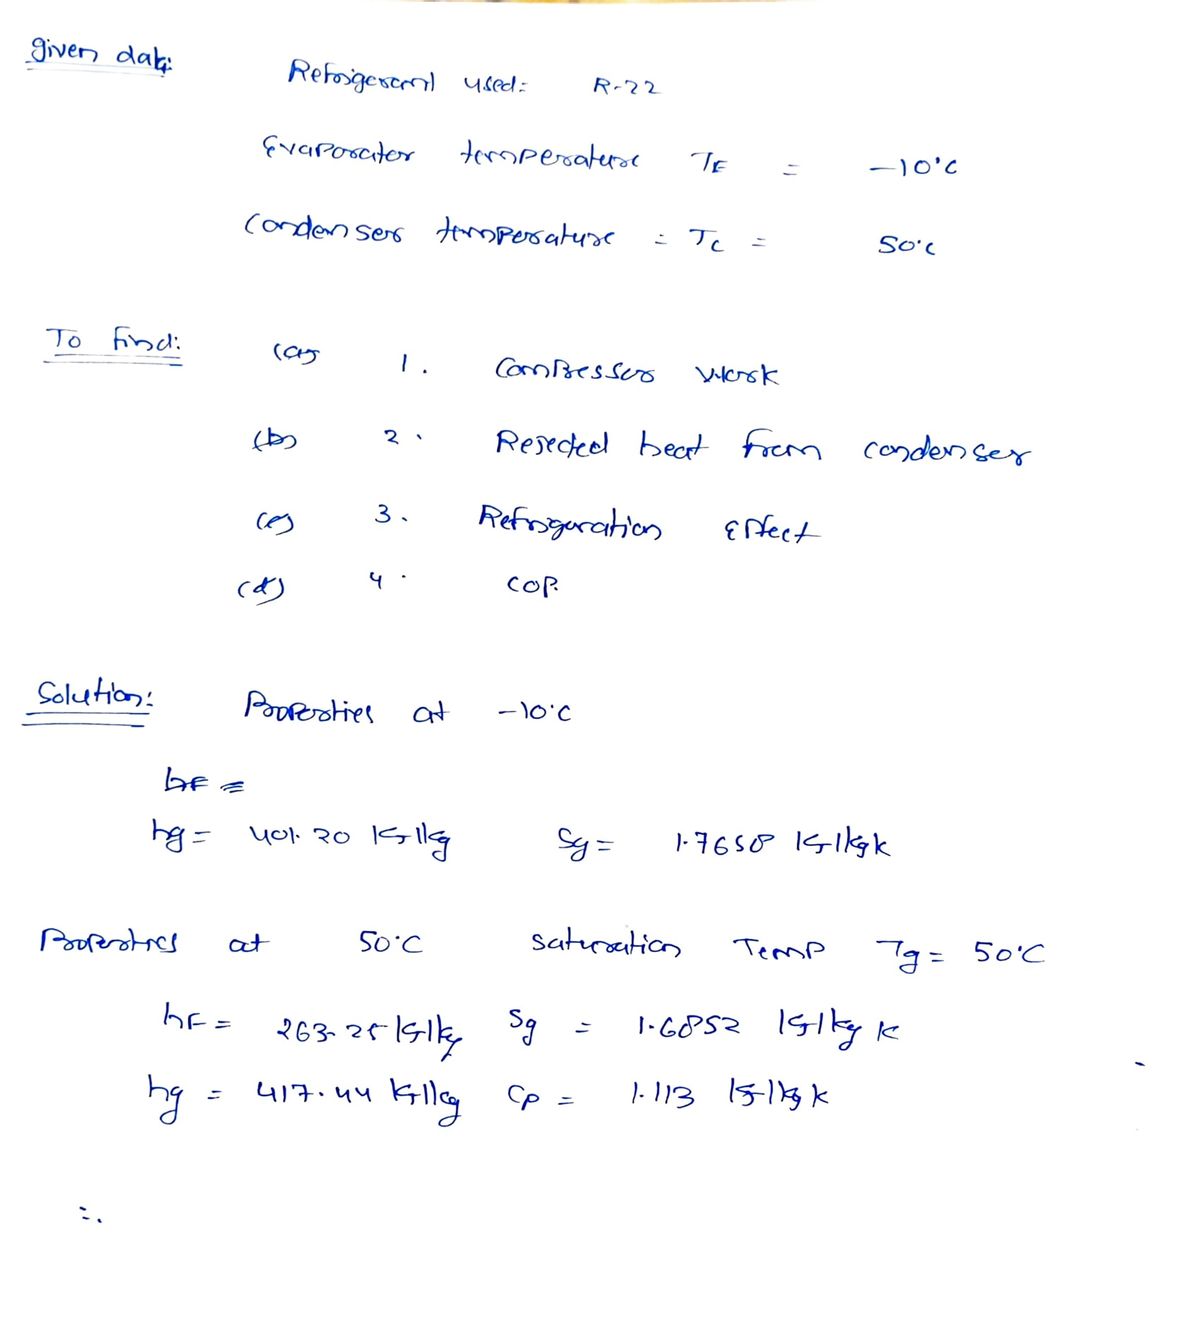 given data:
Refrigerant used: R-22
Evaporator temperature TE = -10°C
Condenser temperature = Tc = 50°C
To find: (a) 1. Compressor work
(b) 2. Rejected heat from condenser
(c) 3. Refrigeration Effect
(d) 4. COP.
Solution: Properties at -10°C
hF =
hg = 401.20 KJ/kg Sg = 1.7658 KJ/kgk
Properties at 50°C saturation Temp Tg = 50°C
hF = 263.25 KJ/kg Sg = 1.6852 KJ/kg K
hg = 417.44 KJ/kg Cp = 1.113 KJ/kg k
∴